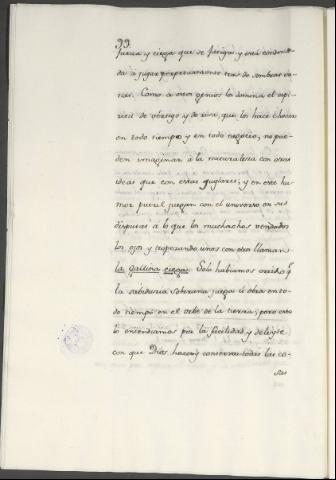 99.
fuerza y ciega que se fatiga y está condena
da á jugar perpetuamente tras de sombras va
nas. Como a estos genios los domina el espi
ritu de vértigo y de risa, que los hace chocar
en todo tiempo y en todo negocio, no pue
den imaginar á la naturaleza con otras
ideas que con estas juglares; y en este hu
mor pueril juegan con el universo en sus
disputas á lo que los muchachos vendados
los ojos y tropezando unos con otros llaman
la gallina ciega. Solo habiamos oido q.e
la sabiduria soberana juega ú obra en to
do tiempo en el orbe de la tierra; pero esto
lo entendiamos por la facilidad y deleyte
con que Dios hace y conserva todas las co
sas